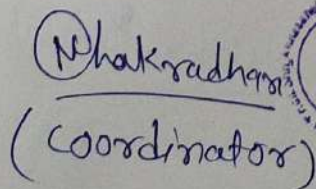 N Chakradhar
(Coordinator)